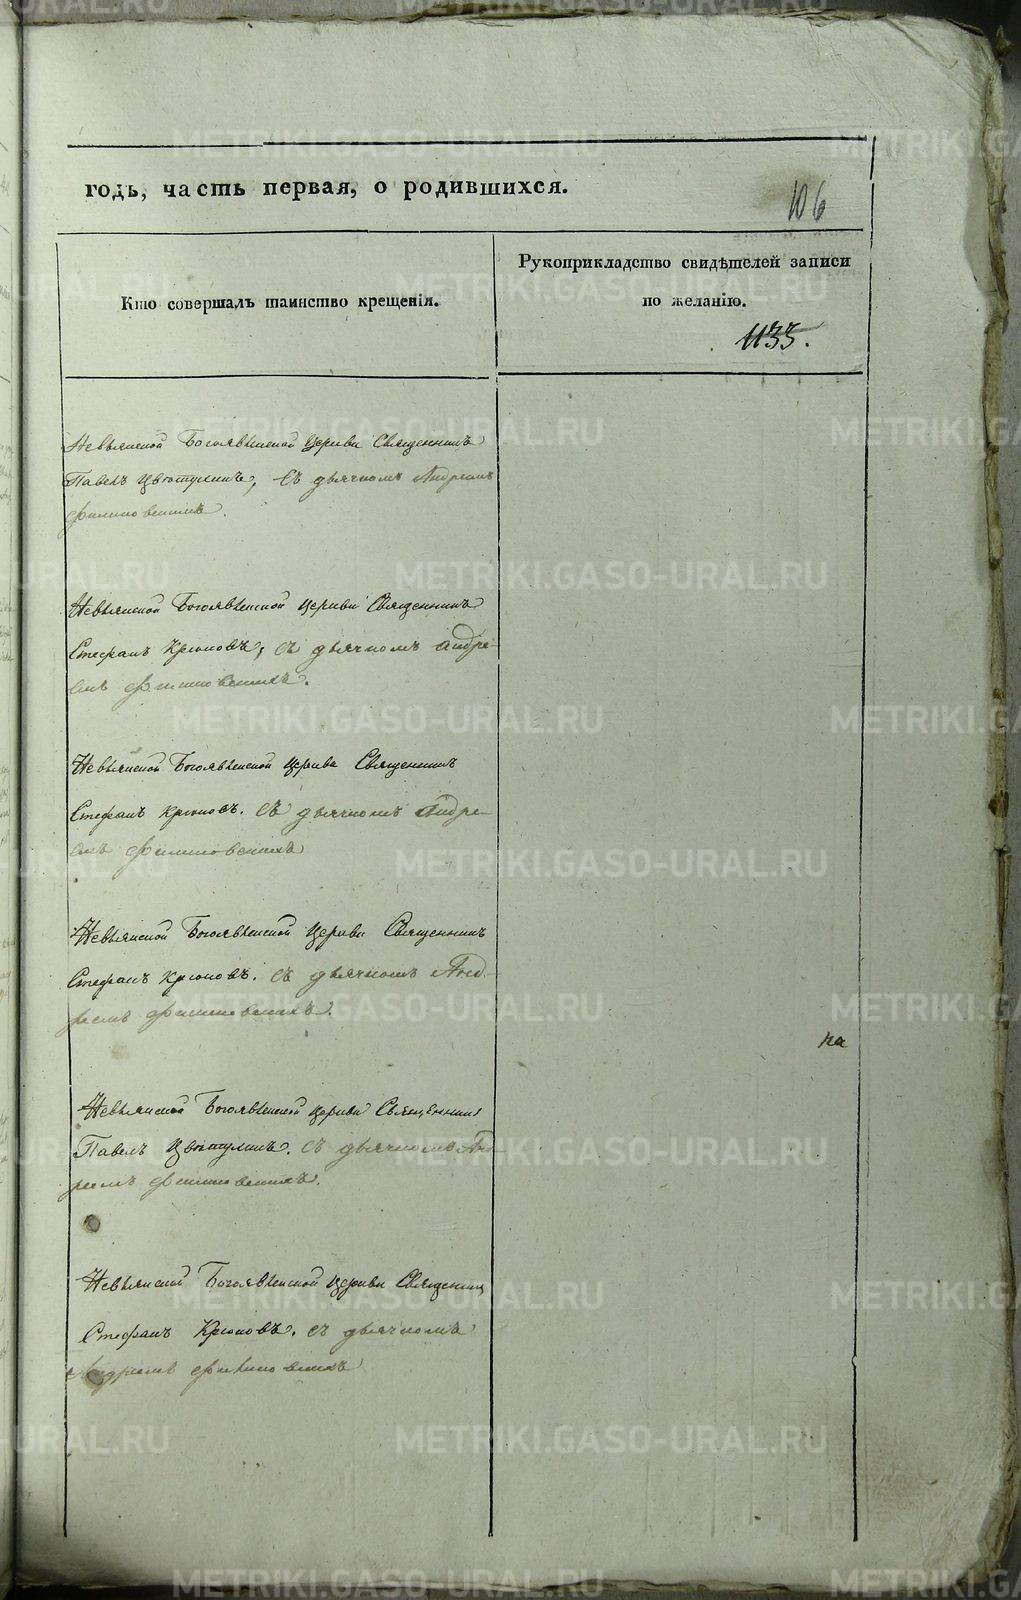 годъ, часть первая, о родившихся.
106
Кто совершалъ таинство крещенія.
Рукоприкладство свидѣтелей записи
по желанію.
1133.
Невьянской Богоявленской Церкви Священникъ
Павелъ Цвѣтухинъ, съ дьячкомъ Андреемъ
Филиповскимъ.
Невьянской Богоявленской Церкви Священникъ
Стефанъ Крюковъ, съ дьячкомъ Андре-
емъ Филиповскимъ.
Невьянской Богоявленской Церкви Священникъ
Стефанъ Крюковъ. съ дьячкомъ Андре-
емъ Филиповскимъ
Невьянской Богоявленской Церкви Священникъ
Стефанъ Крюковъ. съ дьячкомъ Анд-
реемъ Филиповскимъ.
на
Невьянской Богоявленской Церкви Священник
Павелъ Цвѣтухинъ. съ дьячкомъ Анд-
реемъ Филиповскимъ.
Невьянской Богоявленской Церкви Священник
Стефанъ Крюковъ. съ дьячкомъ
Андреемъ Филиповскимъ
METRIKI.GASO-URAL.RU